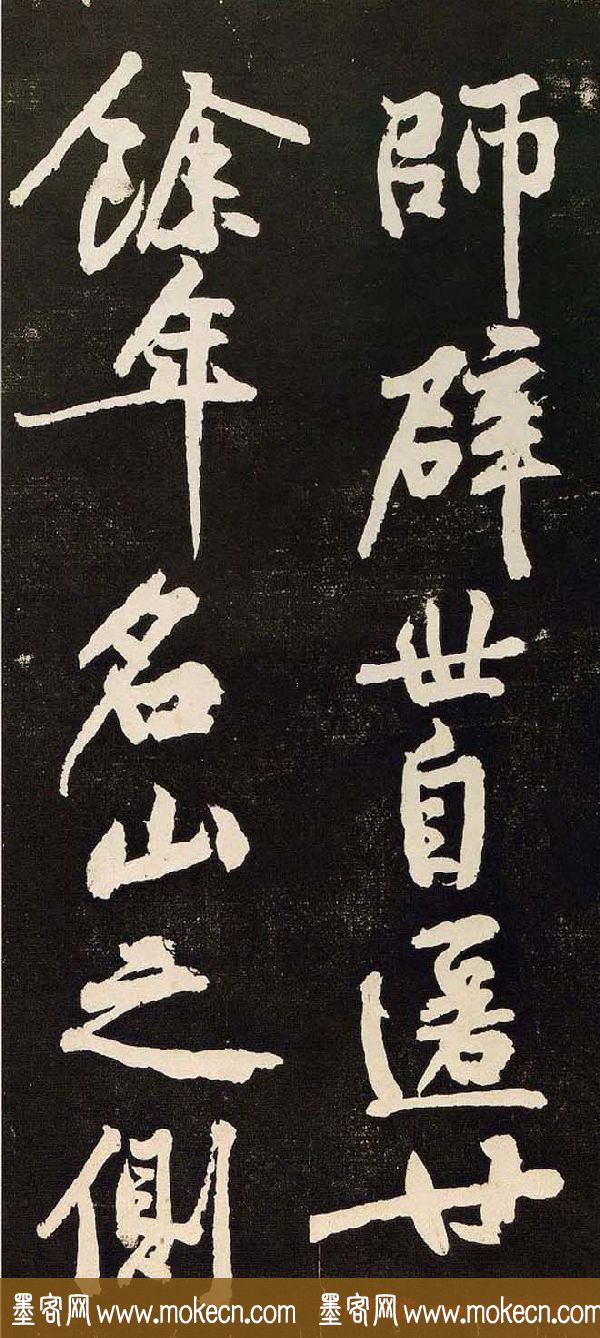 師辟世自遁廿
餘年名山之側
墨客网 www.mokecn.com 墨客网 www.mokecn.com